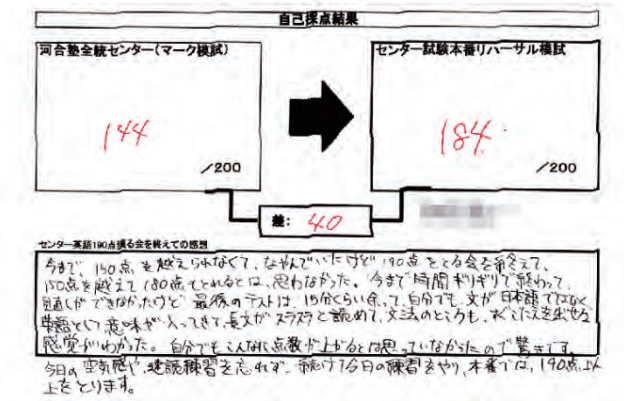 自己採点結果
河合塾全統センター(マーク模試)
センター試験本番リハーサル模試
144
184
/200
/200
差: 40
センター英語190点獲る会を終えての感想
今まで、150点を越えられなくて、なやんでいたけど190点をとる会を終えて、
150点を越えて180点もとれるとは、思わなかった。今まで時間ギリギリで終わって、
見直しができなかったけど、最後のテストは、15分くらい余って、自分でも、文が日本語ではなく
英語として意味が入ってきて、長文がスラスラと読めて、文法のところも、すぐこたえを出せる
感覚がわかった。自分でもこんなに点数が上がるとは思っていなかったので驚きです。
今日の空気感や、速読練習を忘れず、続けて今日の練習をやり、本番では、190点以
上をとります。